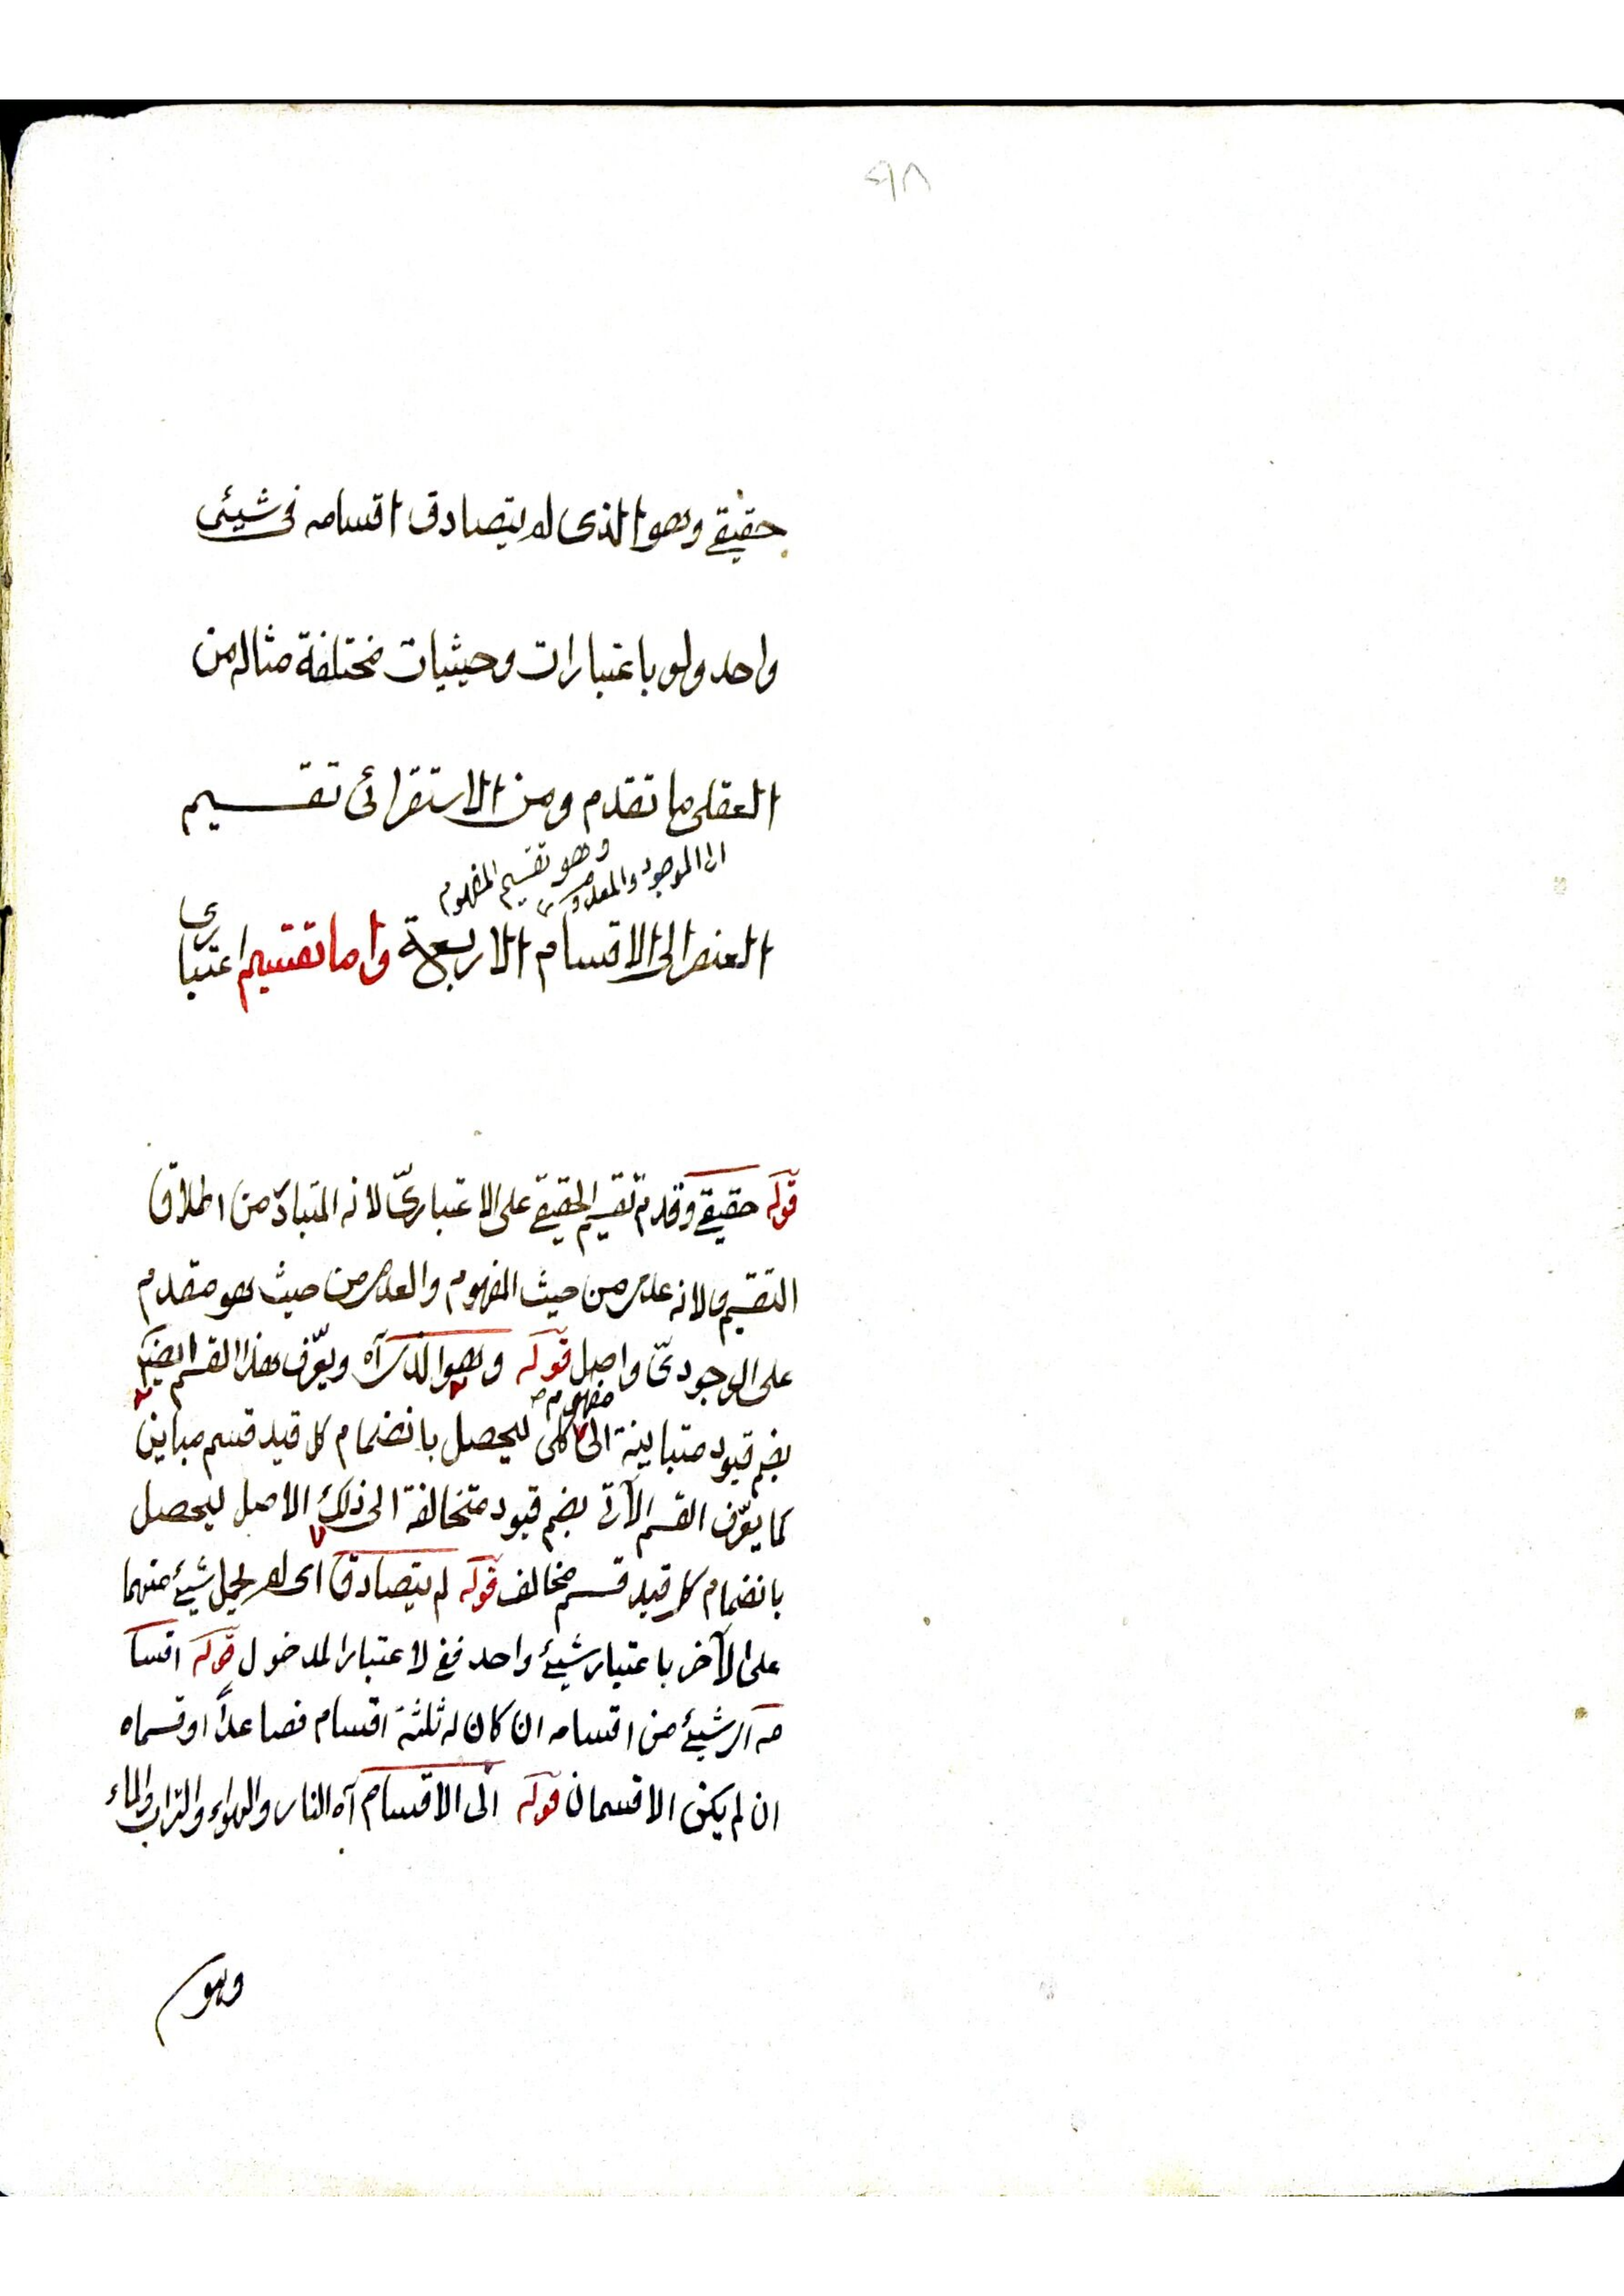 حقيقي وهو الذى لم يتصادق اقسامه فى شيئى
واحد ولو باعتبارات وحيثيات مختلفة مثاله من
العقلى ما تقدم ومن الاستقرائى تقسيم
وهو تقسيم المفهوم
الى الموجود والمعدوم
العنصر الى الاقسام الاربعة واما تقسيم اعتبارى
قوله حقيقي وقدم تقسيم الحقيقي على الاعتبارىّ لانه المتبادر من اطلاق
التقسيم ولانه عدمى من حيث المفهوم والعدمى من حيث هو مقدم
على الوجودىّ واصل قوله وهو الذى آه ويعرّف هذا القسم ايضا
بضم قيود متباينة الى مفهوم كلى ليحصل بانضمام كل قيد قسم مباين
كما يعرّف القسم الآتى بضم قيود متخالفة الى ذلك الاصل ليحصل
بانضمام كل قيد قسم مخالف قوله لم يتصادق اى لم يحمل شيئ منهما
على الآخر باعتبار شيئ واحد ففى لاعتبار المدخول قوله اقسا
مه اى شيئ من اقسامه ان كان له ثلثة اقسام فصاعداً او قسماه
ان لم يكن الا قسمان قوله الى الاقسام آه النار والهواء والتراب والماء
وهو